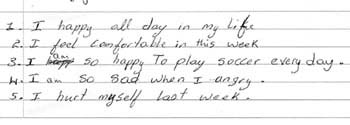 1. I happy all day in my life
2. I feel comfortable in this week
3. I am so happy To play soccer every day.
4. I am so sad when I angry.
5. I hurt myself last week.